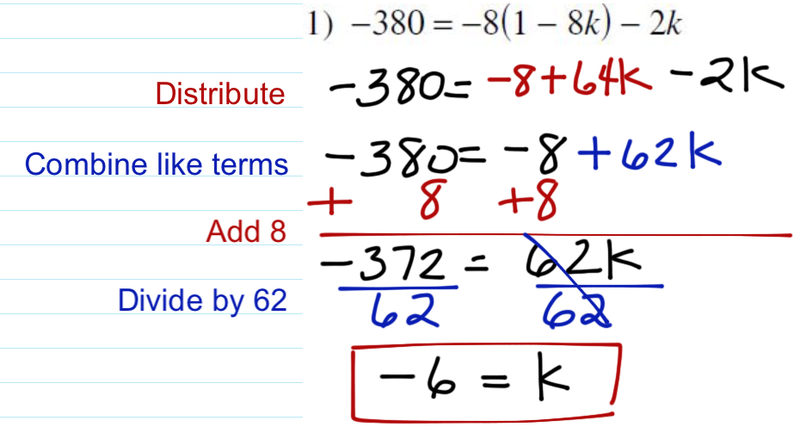 1) −380 = −8(1 − 8k) − 2k
Distribute −380 = −8+64k −2k
Combine like terms −380 = −8 +62k
+ 8 +8
Add 8
−372 = 62k
Divide by 62 62 62
−6 = k